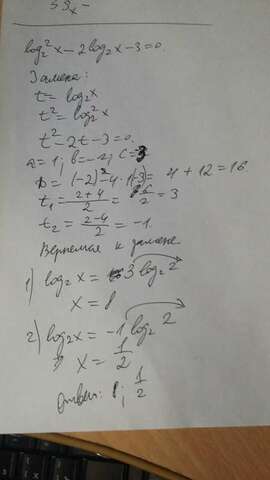 log₂²x − 2log₂x − 3 = 0.
Замена:
t = log₂x
t² = log₂²x
t² − 2t − 3 = 0
a = 1; b = −2; c = −3
D = (−2)² − 4·1(−3) = 4 + 12 = 16
t₁ = (2+4)/2 = 6/2 = 3
t₂ = (2−4)/2 = −1.
Вернемся к замене
1) log₂x = 3log₂2
x = 8
2) log₂x = −1log₂2
x = 1/2
Ответ: 8; 1/2